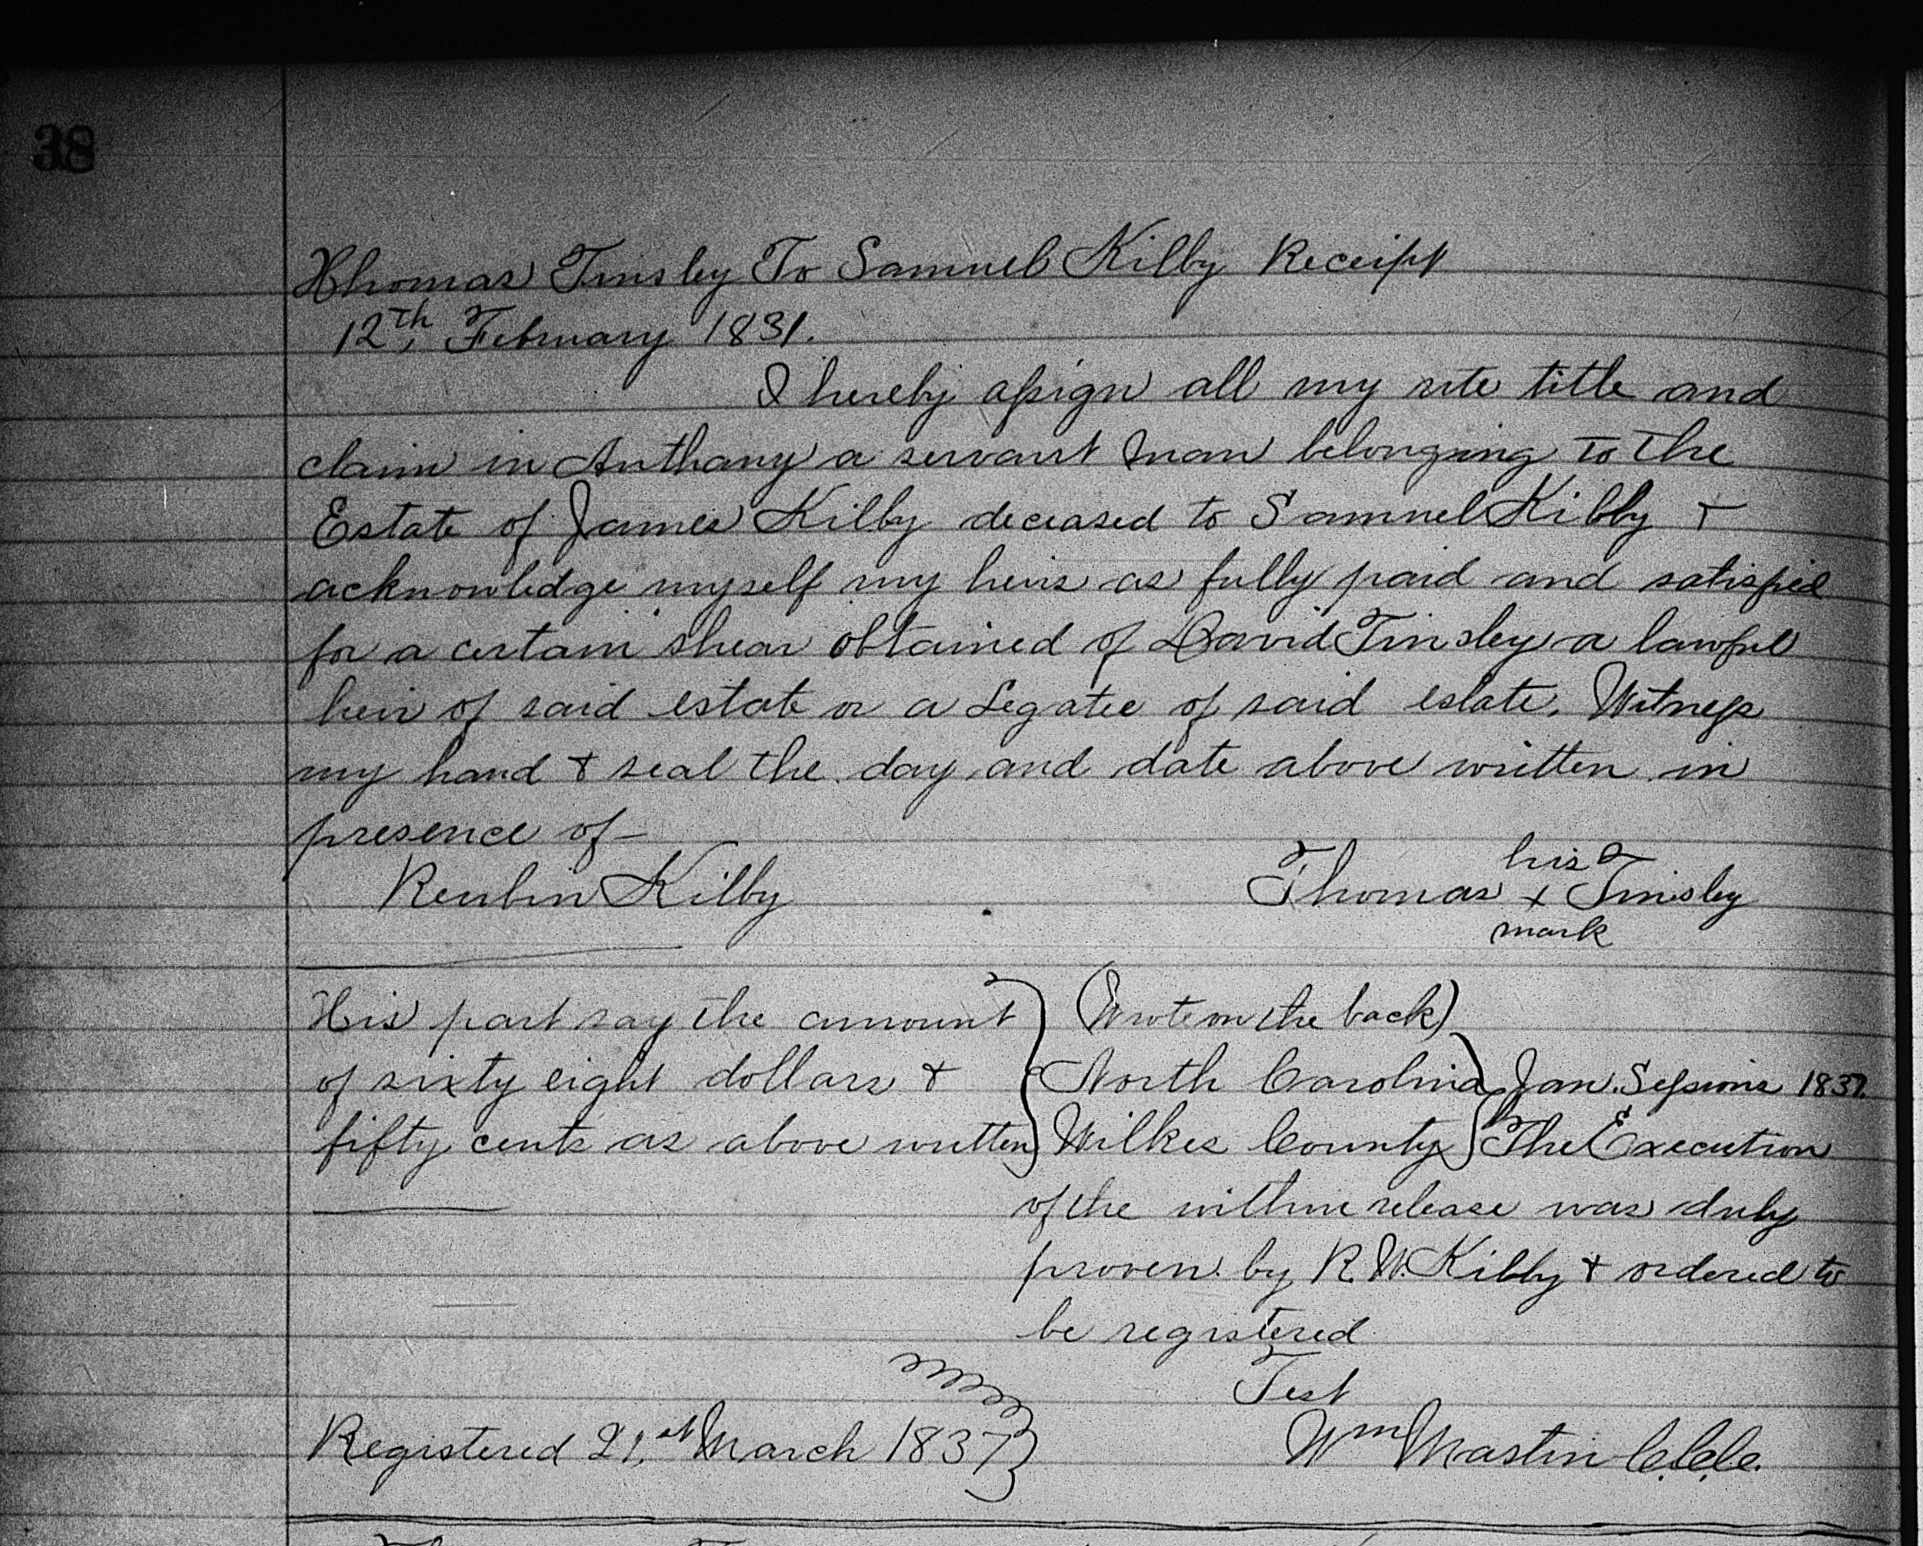 38
Thomas Tinsley To Samuel Kilby Receipt
12th, February 1831.
I hereby assign all my rite title and
claim in Anthany a servant man belonging to the
Estate of James Kilby deceased to Samuel Kilby &
acknowledge myself my heirs as fully paid and satisfied
for a certain shear obtained of David Tinsley a lawful
heir of said estate or a Legatee of said estate. Witness
my hand & seal the day and date above written in
presence of—
his
Reubin Kilby Thomas x Tinsley
mark
His part say the amount
of sixty eight dollars &
fifty cents as above written
(Wrote on the back)
North Carolina Jan. Sessions 1837.
Wilkes County The Execution
of the within release was duly
proven by R. W. Kilby & ordered to
be registered
Test
Registered 21,st March 1837
Wm Mastin C.C.C.